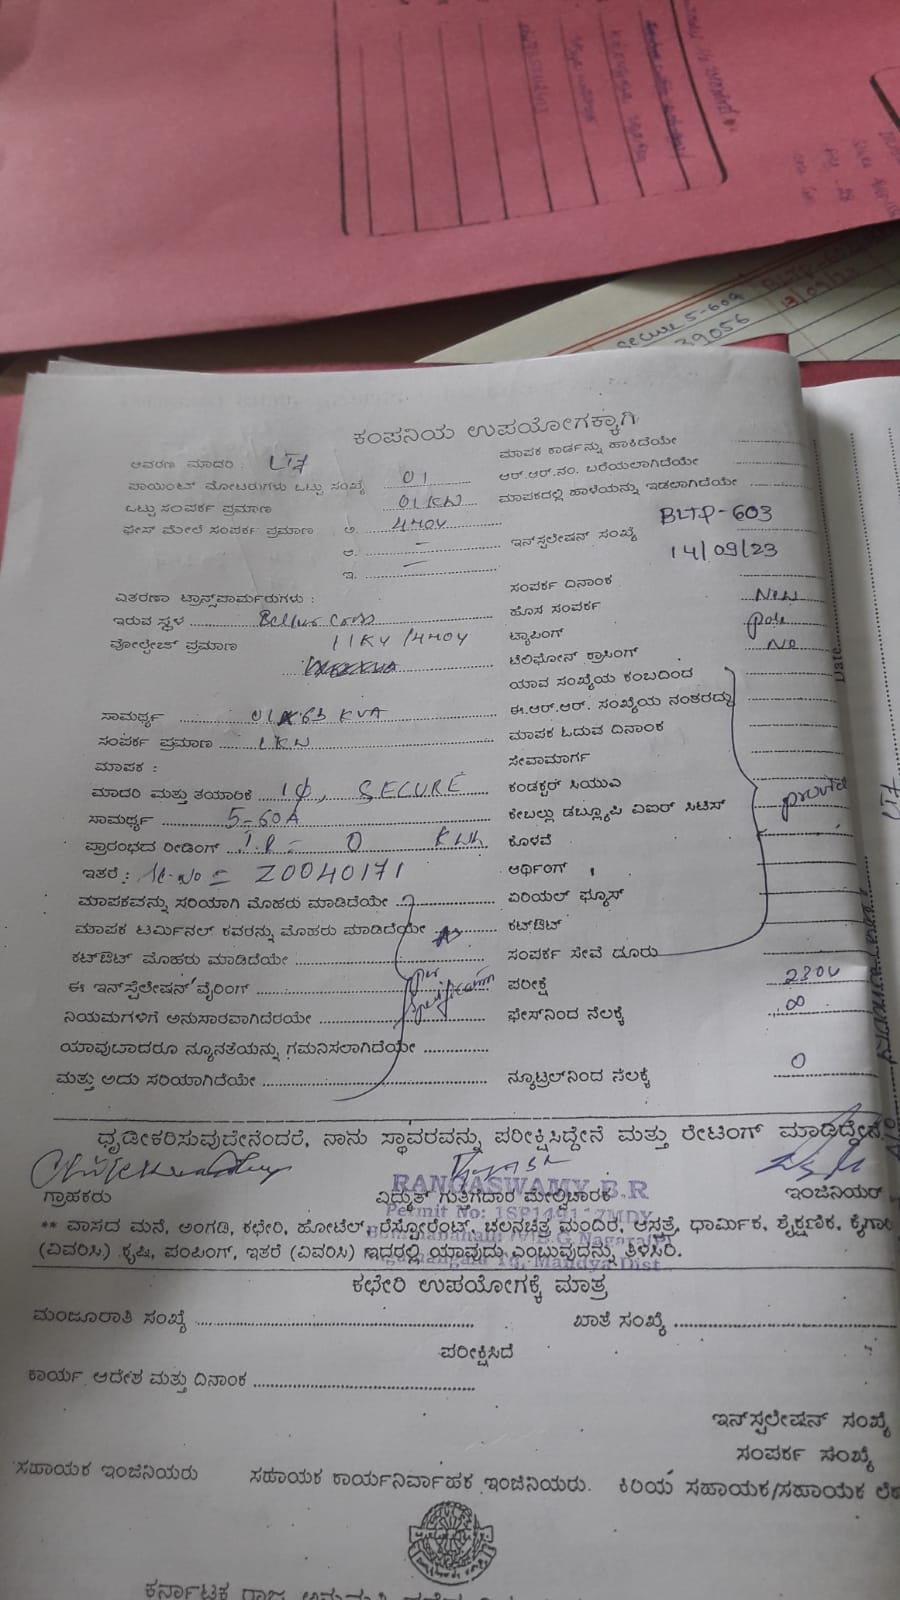 ecure 5-60A
39056
BLTP-602
13/09/23
ಕಂಪನಿಯ ಉಪಯೋಗಕ್ಕಾಗಿ
ಆವರಣ ಮಾದರಿ : LT7
ಮಾಪಕ ಕಾರ್ಡನ್ನು ಹಾಕಿದೆಯೇ
ಪಾಯಿಂಟ್ ಮೋಟರುಗಳು ಒಟ್ಟು ಸಂಖ್ಯೆ 01
ಆರ್.ಆರ್.ನಂ. ಬರೆಯಲಾಗಿದೆಯೇ
ಒಟ್ಟು ಸಂಪರ್ಕ ಪ್ರಮಾಣ 01KW
ಮಾಪಕದಲ್ಲಿ ಹಾಳೆಯನ್ನು ಇಡಲಾಗಿದೆಯೇ
ಫೇಸ್ ಮೇಲೆ ಸಂಪರ್ಕ ಪ್ರಮಾಣ ಅ. 440V
ಆ. –
ಇನ್‌ಸ್ಟಲೇಷನ್ ಸಂಖ್ಯೆ BLTP-603
ಇ. –
14/09/23
ವಿತರಣಾ ಟ್ರಾನ್ಸ್‌ಫಾರ್ಮರುಗಳು :
ಸಂಪರ್ಕ ದಿನಾಂಕ
ಇರುವ ಸ್ಥಳ Bellur Cross
ಹೊಸ ಸಂಪರ್ಕ New
ವೋಲ್ಟೇಜ್ ಪ್ರಮಾಣ 11KV/440V
ಟ್ಯಾಪಿಂಗ್ pole
ಟೆಲಿಫೋನ್ ಕ್ರಾಸಿಂಗ್ No
ಯಾವ ಸಂಖ್ಯೆಯ ಕಂಬದಿಂದ
ಸಾಮರ್ಥ್ಯ 63 KVA
ಈ.ಆರ್.ಆರ್. ಸಂಖ್ಯೆಯ ನಂತರದ್ದು
ಸಂಪರ್ಕ ಪ್ರಮಾಣ 1KW
ಮಾಪಕ ಓದುವ ದಿನಾಂಕ
ಮಾಪಕ :
ಸೇವಾಮಾರ್ಗ
ಮಾದರಿ ಮತ್ತು ತಯಾರಿಕೆ 1ϕ, SECURE
ಕಂಡಕ್ಟರ್ ಸಿಯುವಿ
ಸಾಮರ್ಥ್ಯ 5-60A
ಕೇಬಲ್ಲು ಡಬ್ಲ್ಯೂಪಿ ಎಐರ್ ಸಿಟಿಸ್
ಪ್ರಾರಂಭದ ರೀಡಿಂಗ್ I.R – 0 KWh
ಕೊಳವೆ
ಇತರೆ : Sl-No = Z0040171
ಆರ್ಥಿಂಗ್
ಮಾಪಕವನ್ನು ಸರಿಯಾಗಿ ಮೊಹರು ಮಾಡಿದೆಯೇ
ಏರಿಯಲ್ ಫ್ಯೂಸ್
ಮಾಪಕ ಟರ್ಮಿನಲ್ ಕವರನ್ನು ಮೊಹರು ಮಾಡಿದೆಯೇ As
ಕಟ್‌ಔಟ್
ಕಟ್‌ಔಟ್ ಮೊಹರು ಮಾಡಿದೆಯೇ per
ಸಂಪರ್ಕ ಸೇವೆ ದೂರು
ಈ ಇನ್‌ಸ್ಟೆಲೇಷನ್ ವೈರಿಂಗ್ specification
ಪರೀಕ್ಷೆ 230V
ನಿಯಮಗಳಿಗೆ ಅನುಸಾರವಾಗಿದೆಯೇ
ಫೇಸ್‌ನಿಂದ ನೆಲಕ್ಕೆ ∞
ಯಾವುದಾದರೂ ನ್ಯೂನತೆಯನ್ನು ಗಮನಿಸಲಾಗಿದೆಯೇ
ಮತ್ತು ಅದು ಸರಿಯಾಗಿದೆಯೇ
ನ್ಯೂಟ್ರಲ್‌ನಿಂದ ನೆಲಕ್ಕೆ 0
ಧೃಡೀಕರಿಸುವುದೇನೆಂದರೆ, ನಾನು ಸ್ಥಾವರವನ್ನು ಪರೀಕ್ಷಿಸಿದ್ದೇನೆ ಮತ್ತು ರೇಟಿಂಗ್ ಮಾಡಿದ್ದೇನೆ.
RANGASWAMY B.R
ಗ್ರಾಹಕರು ವಿದ್ಯುತ್ ಗುತ್ತಿಗೆದಾರ ಮೇಲ್ವಿಚಾರಕ ಇಂಜಿನಿಯರ್
Permit No: 1SP14917MDY
** ವಾಸದ ಮನೆ, ಅಂಗಡಿ, ಕಛೇರಿ, ಹೋಟೆಲ್, ರೆಸ್ಟೋರೆಂಟ್, ಚಲನಚಿತ್ರ ಮಂದಿರ, ಆಸ್ಪತ್ರೆ, ಧಾರ್ಮಿಕ, ಶೈಕ್ಷಣಿಕ, ಕೈಗಾ
(ವಿವರಿಸಿ) ಕೃಷಿ, ಪಂಪಿಂಗ್, ಇತರೆ (ವಿವರಿಸಿ) ಇದರಲ್ಲಿ ಯಾವುದು ಎಂಬುವುದನ್ನು ತಿಳಿಸಿರಿ.
Mandya Dist
ಕಛೇರಿ ಉಪಯೋಗಕ್ಕೆ ಮಾತ್ರ
ಮಂಜೂರಾತಿ ಸಂಖ್ಯೆ ಖಾತೆ ಸಂಖ್ಯೆ
ಪರೀಕ್ಷಿಸಿದೆ
ಕಾರ್ಯ ಆದೇಶ ಮತ್ತು ದಿನಾಂಕ
ಇನ್‌ಸ್ಟಲೇಷನ್ ಸಂಖ್ಯೆ
ಸಂಪರ್ಕ ಸಂಖ್ಯೆ
ಸಹಾಯಕ ಇಂಜಿನಿಯರು ಸಹಾಯಕ ಕಾರ್ಯನಿರ್ವಾಹಕ ಇಂಜಿನಿಯರು. ಕಿರಿಯ ಸಹಾಯಕ/ಸಹಾಯಕ ಲೆಕ
ಕರ್ನಾಟಕ ರಾಜ್ಯ